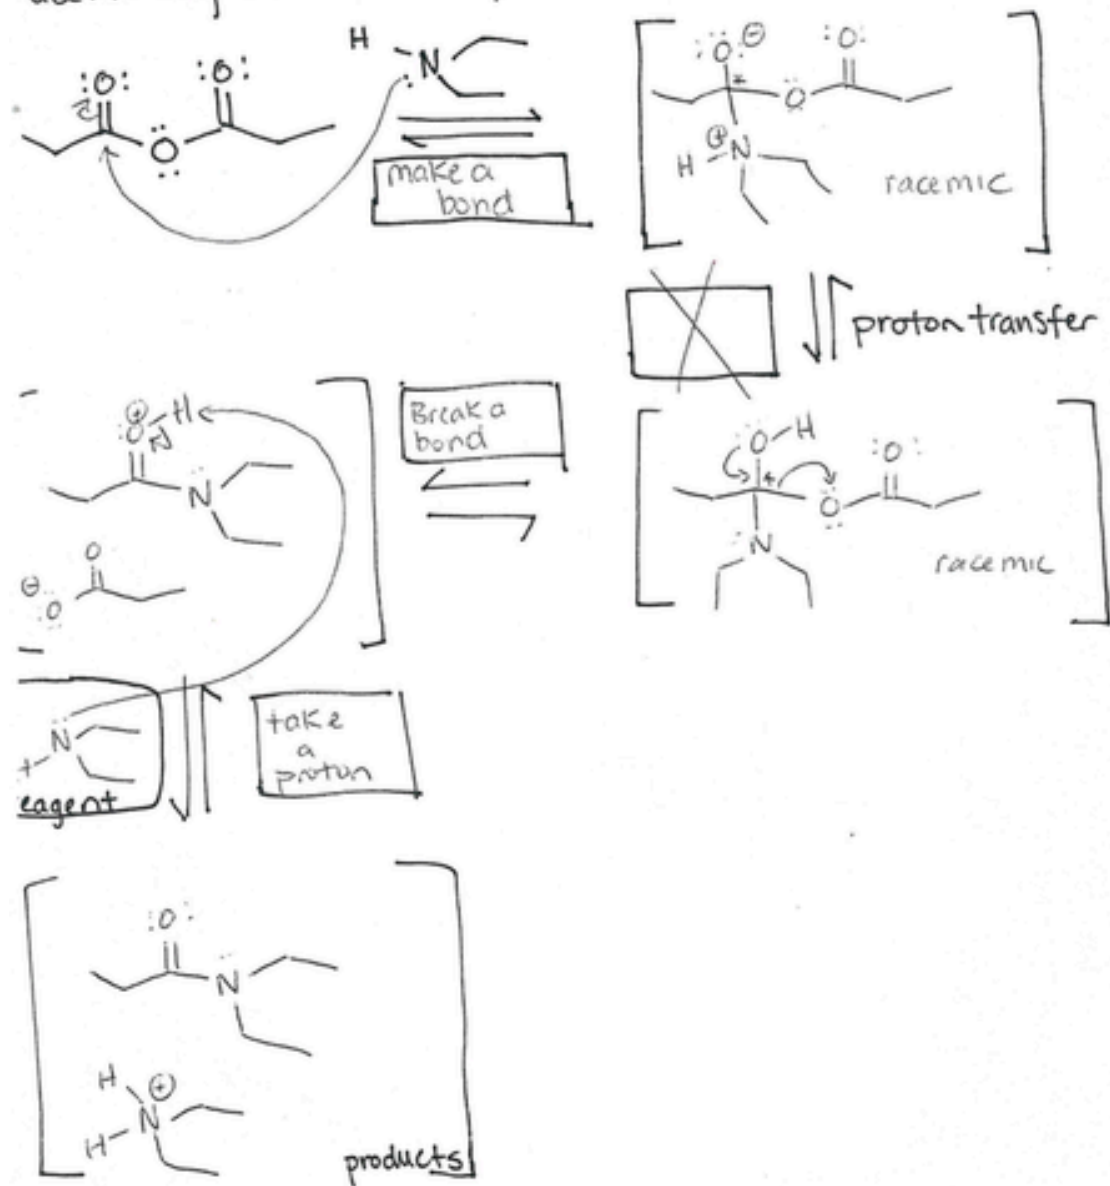 :O: :O:
H
N
O
make a
bond
:O: ⊖ :O:
*
O
⊕
H N
racemic
proton transfer
⊕
O H
N
O
⊖
O
Break a
bond
O H :O:
*
O
N
racemic
N
eagent
take
a
proton
:O:
N
H ⊕
N
H
products